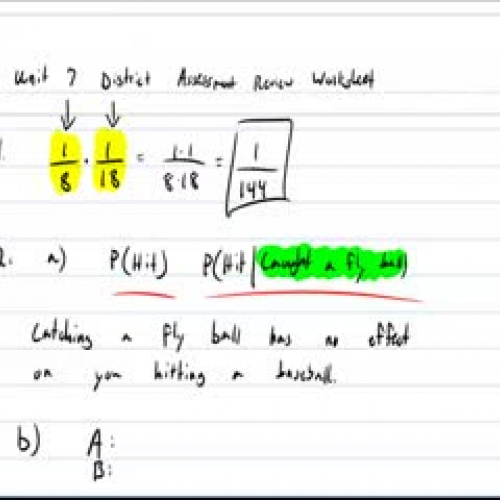 Unit 7 District Assessment Review Worksheet
1/8 · 1/18 = 1·1/8·18 = 1/144
2. a) P(Hit) P(Hit|Caught a fly ball)
Catching a fly ball has no effect
on you hitting a baseball.
b) A:
B: